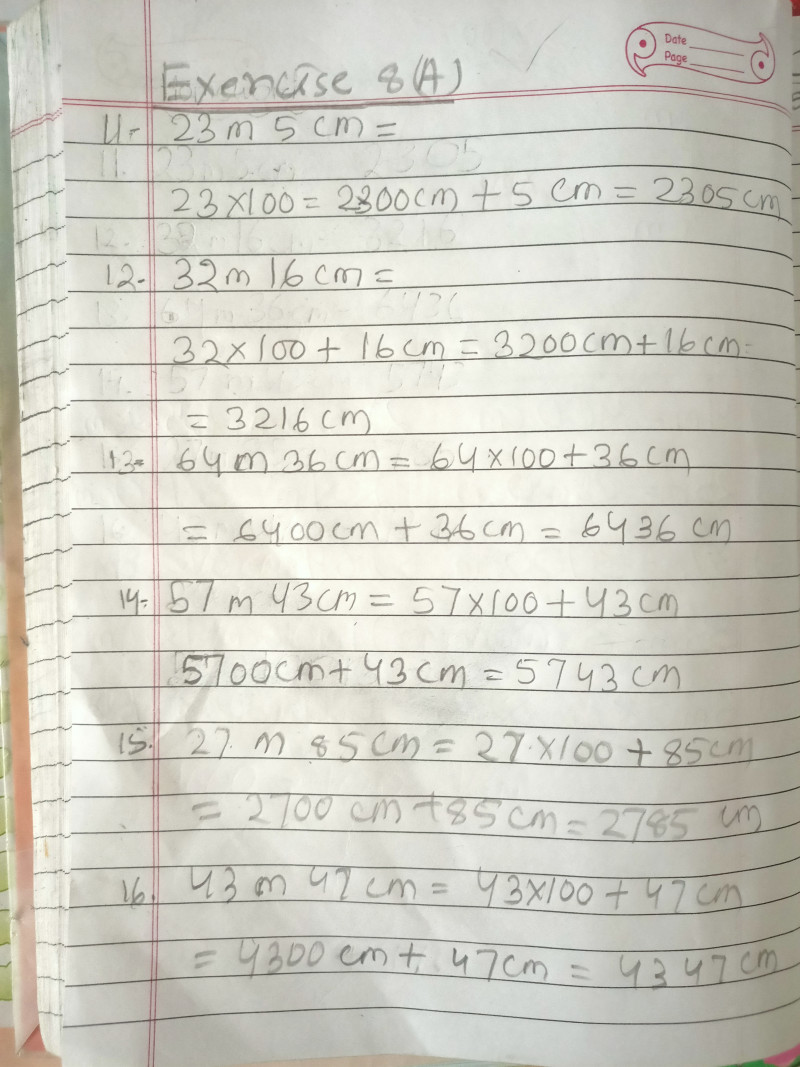 Date
Page
Exercise 8(A)
11- 23 m 5 cm =
11. 23 m 5 cm 2305
23×100 = 2300cm + 5 cm = 2305cm
12. 32m 16cm 3216
12- 32m 16cm =
13. 64m 36cm 6436
32×100 + 16cm = 3200cm+16cm
14. 57 m 5743
= 3216cm
13- 64m 36cm = 64×100+36cm
= 6400cm + 36cm = 6436 cm
14- 57 m 43cm = 57×100 + 43cm
5700cm + 43cm = 5743cm
15. 27 m 85cm = 27×100 + 85cm
= 2700 cm +85 cm = 2785 cm
16. 43 m 47 cm = 43×100 + 47cm
= 4300 cm + 47cm = 4347cm